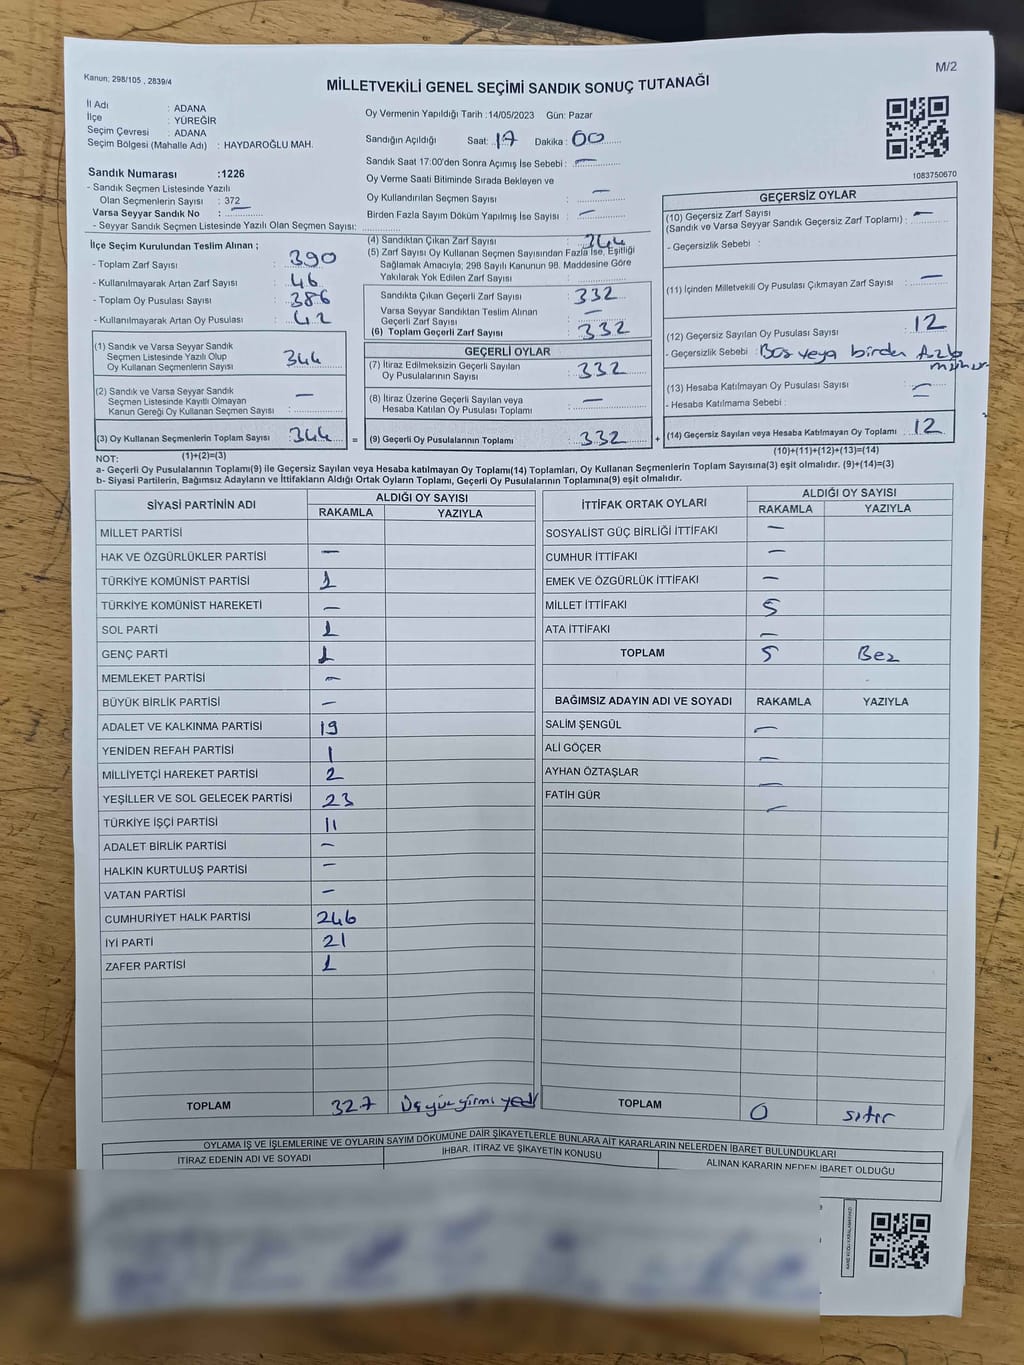 M/2
Kanun; 298/105 , 2839/4
MİLLETVEKİLİ GENEL SEÇİMİ SANDIK SONUÇ TUTANAĞI
İl Adı : ADANA
İlçe : YÜREĞİR
Seçim Çevresi : ADANA
Seçim Bölgesi (Mahalle Adı) : HAYDAROĞLU MAH.
Sandık Numarası :1226
- Sandık Seçmen Listesinde Yazılı
Olan Seçmenlerin Sayısı : 372
Varsa Seyyar Sandık No :
- Seyyar Sandık Seçmen Listesinde Yazılı Olan Seçmen Sayısı:
Oy Vermenin Yapıldığı Tarih :14/05/2023 Gün: Pazar
Sandığın Açıldığı Saat: 17 Dakika : 00
Sandık Saat 17:00'den Sonra Açımış İse Sebebi : —
Oy Verme Saati Bitiminde Sırada Bekleyen ve
Oy Kullandırılan Seçmen Sayısı : —
Birden Fazla Sayım Döküm Yapılmış İse Sayısı : —
1083750670
İlçe Seçim Kurulundan Teslim Alınan ;
- Toplam Zarf Sayısı : 390
- Kullanılmayarak Artan Zarf Sayısı : 46
- Toplam Oy Pusulası Sayısı : 386
- Kullanılmayarak Artan Oy Pusulası : 42
(1) Sandık ve Varsa Seyyar Sandık
Seçmen Listesinde Yazılı Olup
Oy Kullanan Seçmenlerin Sayısı : 344
(2) Sandık ve Varsa Seyyar Sandık
Seçmen Listesinde Kayıtlı Olmayan
Kanun Gereği Oy Kullanan Seçmen Sayısı : —
(3) Oy Kullanan Seçmenlerin Toplam Sayısı : 344
(4) Sandıktan Çıkan Zarf Sayısı : 344
(5) Zarf Sayısı Oy Kullanan Seçmen Sayısından Fazla İse, Eşitliği
Sağlamak Amacıyla; 298 Sayılı Kanunun 98. Maddesine Göre
Yakılarak Yok Edilen Zarf Sayısı :
Sandıkta Çıkan Geçerli Zarf Sayısı : 332
Varsa Seyyar Sandıktan Teslim Alınan
Geçerli Zarf Sayısı : —
(6) Toplam Geçerli Zarf Sayısı : 332
GEÇERLİ OYLAR
(7) İtiraz Edilmeksizin Geçerli Sayılan
Oy Pusulalarının Sayısı : 332
(8) İtiraz Üzerine Geçerli Sayılan veya
Hesaba Katılan Oy Pusulası Toplamı : —
= (9) Geçerli Oy Pusulalarının Toplamı : 332 +
GEÇERSİZ OYLAR
(10) Geçersiz Zarf Sayısı : —
(Sandık ve Varsa Seyyar Sandık Geçersiz Zarf Toplamı) :
- Geçersizlik Sebebi :
(11) İçinden Milletvekili Oy Pusulası Çıkmayan Zarf Sayısı : —
(12) Geçersiz Sayılan Oy Pusulası Sayısı : 12
- Geçersizlik Sebebi : Boş veya birden fazla
mühür
(13) Hesaba Katılmayan Oy Pusulası Sayısı : —
- Hesaba Katılmama Sebebi : —
(14) Geçersiz Sayılan veya Hesaba Katılmayan Oy Toplamı : 12
NOT: (1)+(2)=(3)
(10)+(11)+(12)+(13)=(14)
a- Geçerli Oy Pusulalarının Toplamı(9) ile Geçersiz Sayılan veya Hesaba katılmayan Oy Toplamı(14) Toplamları, Oy Kullanan Seçmenlerin Toplam Sayısına(3) eşit olmalıdır. (9)+(14)=(3)
b- Siyasi Partilerin, Bağımsız Adayların ve İttifakların Aldığı Ortak Oyların Toplamı, Geçerli Oy Pusulalarının Toplamına(9) eşit olmalıdır.
SİYASİ PARTİNİN ADI ALDIĞI OY SAYISI
RAKAMLA YAZIYLA
MİLLET PARTİSİ
HAK VE ÖZGÜRLÜKLER PARTİSİ —
TÜRKİYE KOMÜNİST PARTİSİ 1
TÜRKİYE KOMÜNİST HAREKETİ —
SOL PARTİ 1
GENÇ PARTİ 1
MEMLEKET PARTİSİ —
BÜYÜK BİRLİK PARTİSİ —
ADALET VE KALKINMA PARTİSİ 19
YENİDEN REFAH PARTİSİ 1
MİLLİYETÇİ HAREKET PARTİSİ 2
YEŞİLLER VE SOL GELECEK PARTİSİ 23
TÜRKİYE İŞÇİ PARTİSİ 11
ADALET BİRLİK PARTİSİ —
HALKIN KURTULUŞ PARTİSİ —
VATAN PARTİSİ —
CUMHURİYET HALK PARTİSİ 246
İYİ PARTİ 21
ZAFER PARTİSİ 1
TOPLAM 327 Üçyüzyirmi yedi
İTTİFAK ORTAK OYLARI ALDIĞI OY SAYISI
RAKAMLA YAZIYLA
SOSYALİST GÜÇ BİRLİĞİ İTTİFAKI —
CUMHUR İTTİFAKI —
EMEK VE ÖZGÜRLÜK İTTİFAKI —
MİLLET İTTİFAKI 5
ATA İTTİFAKI —
TOPLAM 5 Beş
BAĞIMSIZ ADAYIN ADI VE SOYADI RAKAMLA YAZIYLA
SALİM ŞENGÜL —
ALİ GÖÇER —
AYHAN ÖZTAŞLAR —
FATİH GÜR —
TOPLAM 0 sıfır
OYLAMA İŞ VE İŞLEMLERİNE VE OYLARIN SAYIM DÖKÜMÜNE DAİR ŞİKAYETLERLE BUNLARA AİT KARARLARIN NELERDEN İBARET BULUNDUKLARI
İTİRAZ EDENİN ADI VE SOYADI İHBAR, İTİRAZ VE ŞİKAYETİN KONUSU ALINAN KARARIN NEDEN İBARET OLDUĞU